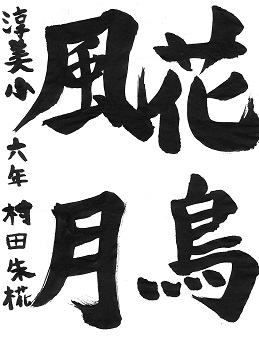 花鳥
風月
淳美小 六年 村田朱椛